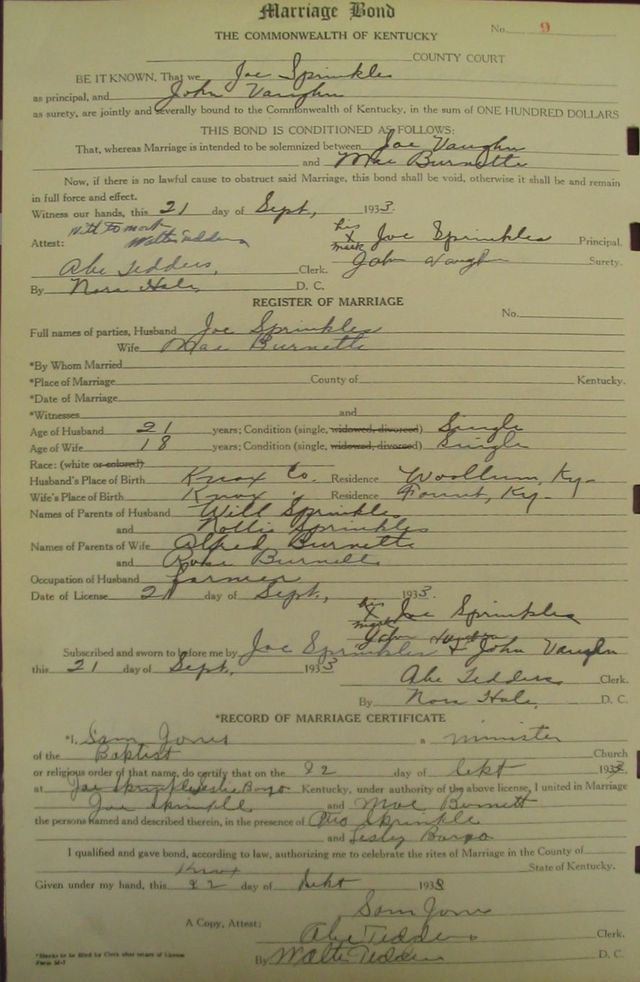 Marriage Bond
No. 9
THE COMMONWEALTH OF KENTUCKY
COUNTY COURT
BE IT KNOWN, That we Joe Sprinkles
as principal, and John Vaughn
as surety, are jointly and severally bound to the Commonwealth of Kentucky, in the sum of ONE HUNDRED DOLLARS
THIS BOND IS CONDITIONED AS FOLLOWS:
That, whereas Marriage is intended to be solemnized between Joe Vaughn
and Mae Burnette
Now, if there is no lawful cause to obstruct said Marriage, this bond shall be void, otherwise it shall be and remain
in full force and effect.
Witness our hands, this 21 day of Sept, 1933.
Attest: Witt to mark Walter Tedders
his X mark Joe Sprinkles Principal.
John Vaughn Surety.
Abe Tedders, Clerk.
By Nora Hale, D. C.
REGISTER OF MARRIAGE
No.
Full names of parties, Husband Joe Sprinkles
Wife Mae Burnette
*By Whom Married
*Place of Marriage County of Kentucky.
*Date of Marriage
*Witnesses and
Age of Husband 21 years; Condition (single, widowed, divorced) Single
Age of Wife 18 years; Condition (single, widowed, divorced) Single
Race: (white or colored)
Husband's Place of Birth Knox Co. Residence Woollum, Ky-
Wife's Place of Birth Knox " Residence Fount, Ky-
Names of Parents of Husband Will Sprinkles
and Sprinkles
Names of Parents of Wife Alfred Burnette
and Burnette
Occupation of Husband Farmer
Date of License 21 day of Sept, 1933.
his X mark Joe Sprinkles
John Vaughn
Subscribed and sworn to before me by Joe Sprinkles & John Vaughn
this 21 day of Sept, 1933
Abe Tedders Clerk.
By Nora Hale, D. C.
*RECORD OF MARRIAGE CERTIFICATE
*I, Sam Jones a minister
of the Baptist Church
or religious order of that name, do certify that on the 22 day of Sept 1933
at Joe Kentucky, under authority of the above license, I united in Marriage
Joe Sprinkle and Mae Burnett
the persons named and described therein, in the presence of Sprinkle
and Lesley Bargo
I qualified and gave bond, according to law, authorizing me to celebrate the rites of Marriage in the County of
Knox State of Kentucky.
Given under my hand, this 22 day of Sept 1933
Sam Jones
A Copy, Attest: Abe Tedders Clerk.
By Walter Tedders D. C.
Form M-1